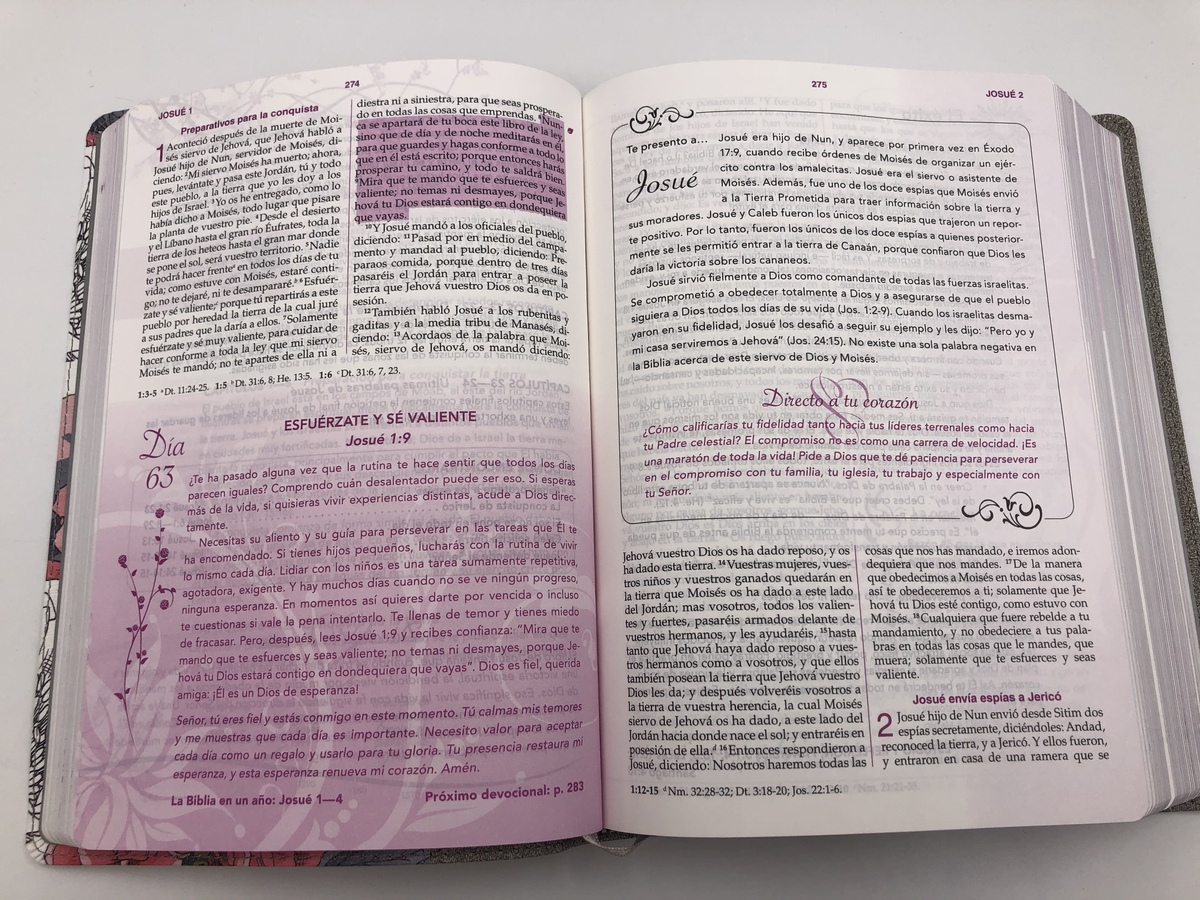 274
JOSUÉ 1
Preparativos para la conquista
1 Aconteció después de la muerte de Moi-
sés siervo de Jehová, que Jehová habló a
Josué hijo de Nun, servidor de Moisés, di-
ciendo: ²Mi siervo Moisés ha muerto; ahora,
pues, levántate y pasa este Jordán, tú y todo
este pueblo, a la tierra que yo les doy a los
hijos de Israel. ³Yo os he entregado, como lo
había dicho a Moisés, todo lugar que pisare
la planta de vuestro pie. ⁴Desde el desierto
y el Líbano hasta el gran río Éufrates, toda la
tierra de los heteos hasta el gran mar donde
se pone el sol, será vuestro territorio. ⁵Nadie
te podrá hacer frenteᵃ en todos los días de tu
vida; como estuve con Moisés, estaré conti-
go; no te dejaré, ni te desampararé.ᵇ ⁶Esfuér-
zate y sé valiente;ᶜ porque tú repartirás a este
pueblo por heredad la tierra de la cual juré
a sus padres que la daría a ellos. ⁷Solamente
esfuérzate y sé muy valiente, para cuidar de
hacer conforme a toda la ley que mi siervo
Moisés te mandó; no te apartes de ella ni a
diestra ni a siniestra, para que seas prospera-
do en todas las cosas que emprendas. ⁸Nun-
ca se apartará de tu boca este libro de la ley,
sino que de día y de noche meditarás en él,
para que guardes y hagas conforme a todo lo
que en él está escrito; porque entonces harás
prosperar tu camino, y todo te saldrá bien.
⁹Mira que te mando que te esfuerces y seas
valiente; no temas ni desmayes, porque Je-
hová tu Dios estará contigo en dondequiera
que vayas.
¹⁰Y Josué mandó a los oficiales del pueblo,
diciendo: ¹¹Pasad por en medio del campa-
mento y mandad al pueblo, diciendo: Pre-
paraos comida, porque dentro de tres días
pasaréis el Jordán para entrar a poseer la
tierra que Jehová vuestro Dios os da en po-
sesión.
¹²También habló Josué a los rubenitas y
gaditas y a la media tribu de Manasés, di-
ciendo: ¹³Acordaos de la palabra que Moi-
sés, siervo de Jehová, os mandó diciendo:
1:3-5 ᵃDt. 11:24-25. 1:5 ᵇDt. 31:6, 8; He. 13:5. 1:6 ᶜDt. 31:6, 7, 23.
Día
63
ESFUÉRZATE Y SÉ VALIENTE
Josué 1:9
¿Te ha pasado alguna vez que la rutina te hace sentir que todos los días
parecen iguales? Comprendo cuán desalentador puede ser eso. Si esperas
más de la vida, si quisieras vivir experiencias distintas, acude a Dios direc-
tamente.
Necesitas su aliento y su guía para perseverar en las tareas que Él te
ha encomendado. Si tienes hijos pequeños, lucharás con la rutina de vivir
lo mismo cada día. Lidiar con los niños es una tarea sumamente repetitiva,
agotadora, exigente. Y hay muchos días cuando no se ve ningún progreso,
ninguna esperanza. En momentos así quieres darte por vencida o incluso
te cuestionas si vale la pena intentarlo. Te llenas de temor y tienes miedo
de fracasar. Pero, después, lees Josué 1:9 y recibes confianza: "Mira que te
mando que te esfuerces y seas valiente; no temas ni desmayes, porque Je-
hová tu Dios estará contigo en dondequiera que vayas". Dios es fiel, querida
amiga: ¡Él es un Dios de esperanza!
Señor, tú eres fiel y estás conmigo en este momento. Tú calmas mis temores
y me muestras que cada día es importante. Necesito valor para aceptar
cada día como un regalo y usarlo para tu gloria. Tu presencia restaura mi
esperanza, y esta esperanza renueva mi corazón. Amén.
La Biblia en un año: Josué 1—4
Próximo devocional: p. 283
275
JOSUÉ 2
Te presento a...
Josué
Josué era hijo de Nun, y aparece por primera vez en Éxodo
17:9, cuando recibe órdenes de Moisés de organizar un ejér-
cito contra los amalecitas. Josué era el siervo o asistente de
Moisés. Además, fue uno de los doce espías que Moisés envió
a la Tierra Prometida para traer información sobre la tierra y
sus moradores. Josué y Caleb fueron los únicos dos espías que trajeron un repor-
te positivo. Por lo tanto, fueron los únicos de los doce espías a quienes posterior-
mente se les permitió entrar a la tierra de Canaán, porque confiaron que Dios les
daría la victoria sobre los cananeos.
Josué sirvió fielmente a Dios como comandante de todas las fuerzas israelitas.
Se comprometió a obedecer totalmente a Dios y a asegurarse de que el pueblo
siguiera a Dios todos los días de su vida (Jos. 1:2-9). Cuando los israelitas desma-
yaron en su fidelidad, Josué los desafió a seguir su ejemplo y les dijo: "Pero yo y
mi casa serviremos a Jehová" (Jos. 24:15). No existe una sola palabra negativa en
la Biblia acerca de este siervo de Dios y Moisés.
Directo a tu corazón
¿Cómo calificarías tu fidelidad tanto hacia tus líderes terrenales como hacia
tu Padre celestial? El compromiso no es como una carrera de velocidad. ¡Es
una maratón de toda la vida! Pide a Dios que te dé paciencia para perseverar
en el compromiso con tu familia, tu iglesia, tu trabajo y especialmente con
tu Señor.
Jehová vuestro Dios os ha dado reposo, y os
ha dado esta tierra. ¹⁴Vuestras mujeres, vues-
tros niños y vuestros ganados quedarán en
la tierra que Moisés os ha dado a este lado
del Jordán; mas vosotros, todos los valien-
tes y fuertes, pasaréis armados delante de
vuestros hermanos, y les ayudaréis, ¹⁵hasta
tanto que Jehová haya dado reposo a vues-
tros hermanos como a vosotros, y que ellos
también posean la tierra que Jehová vuestro
Dios les da; y después volveréis vosotros a
la tierra de vuestra herencia, la cual Moisés
siervo de Jehová os ha dado, a este lado del
Jordán hacia donde nace el sol; y entraréis en
posesión de ella.ᵈ ¹⁶Entonces respondieron a
Josué, diciendo: Nosotros haremos todas las
cosas que nos has mandado, e iremos adon-
dequiera que nos mandes. ¹⁷De la manera
que obedecimos a Moisés en todas las cosas,
así te obedeceremos a ti; solamente que Je-
hová tu Dios esté contigo, como estuvo con
Moisés. ¹⁸Cualquiera que fuere rebelde a tu
mandamiento, y no obedeciere a tus pala-
bras en todas las cosas que le mandes, que
muera; solamente que te esfuerces y seas
valiente.
Josué envía espías a Jericó
2 Josué hijo de Nun envió desde Sitim dos
espías secretamente, diciéndoles: Andad,
reconoced la tierra, y a Jericó. Y ellos fueron,
y entraron en casa de una ramera que se
1:12-15 ᵈNm. 32:28-32; Dt. 3:18-20; Jos. 22:1-6.